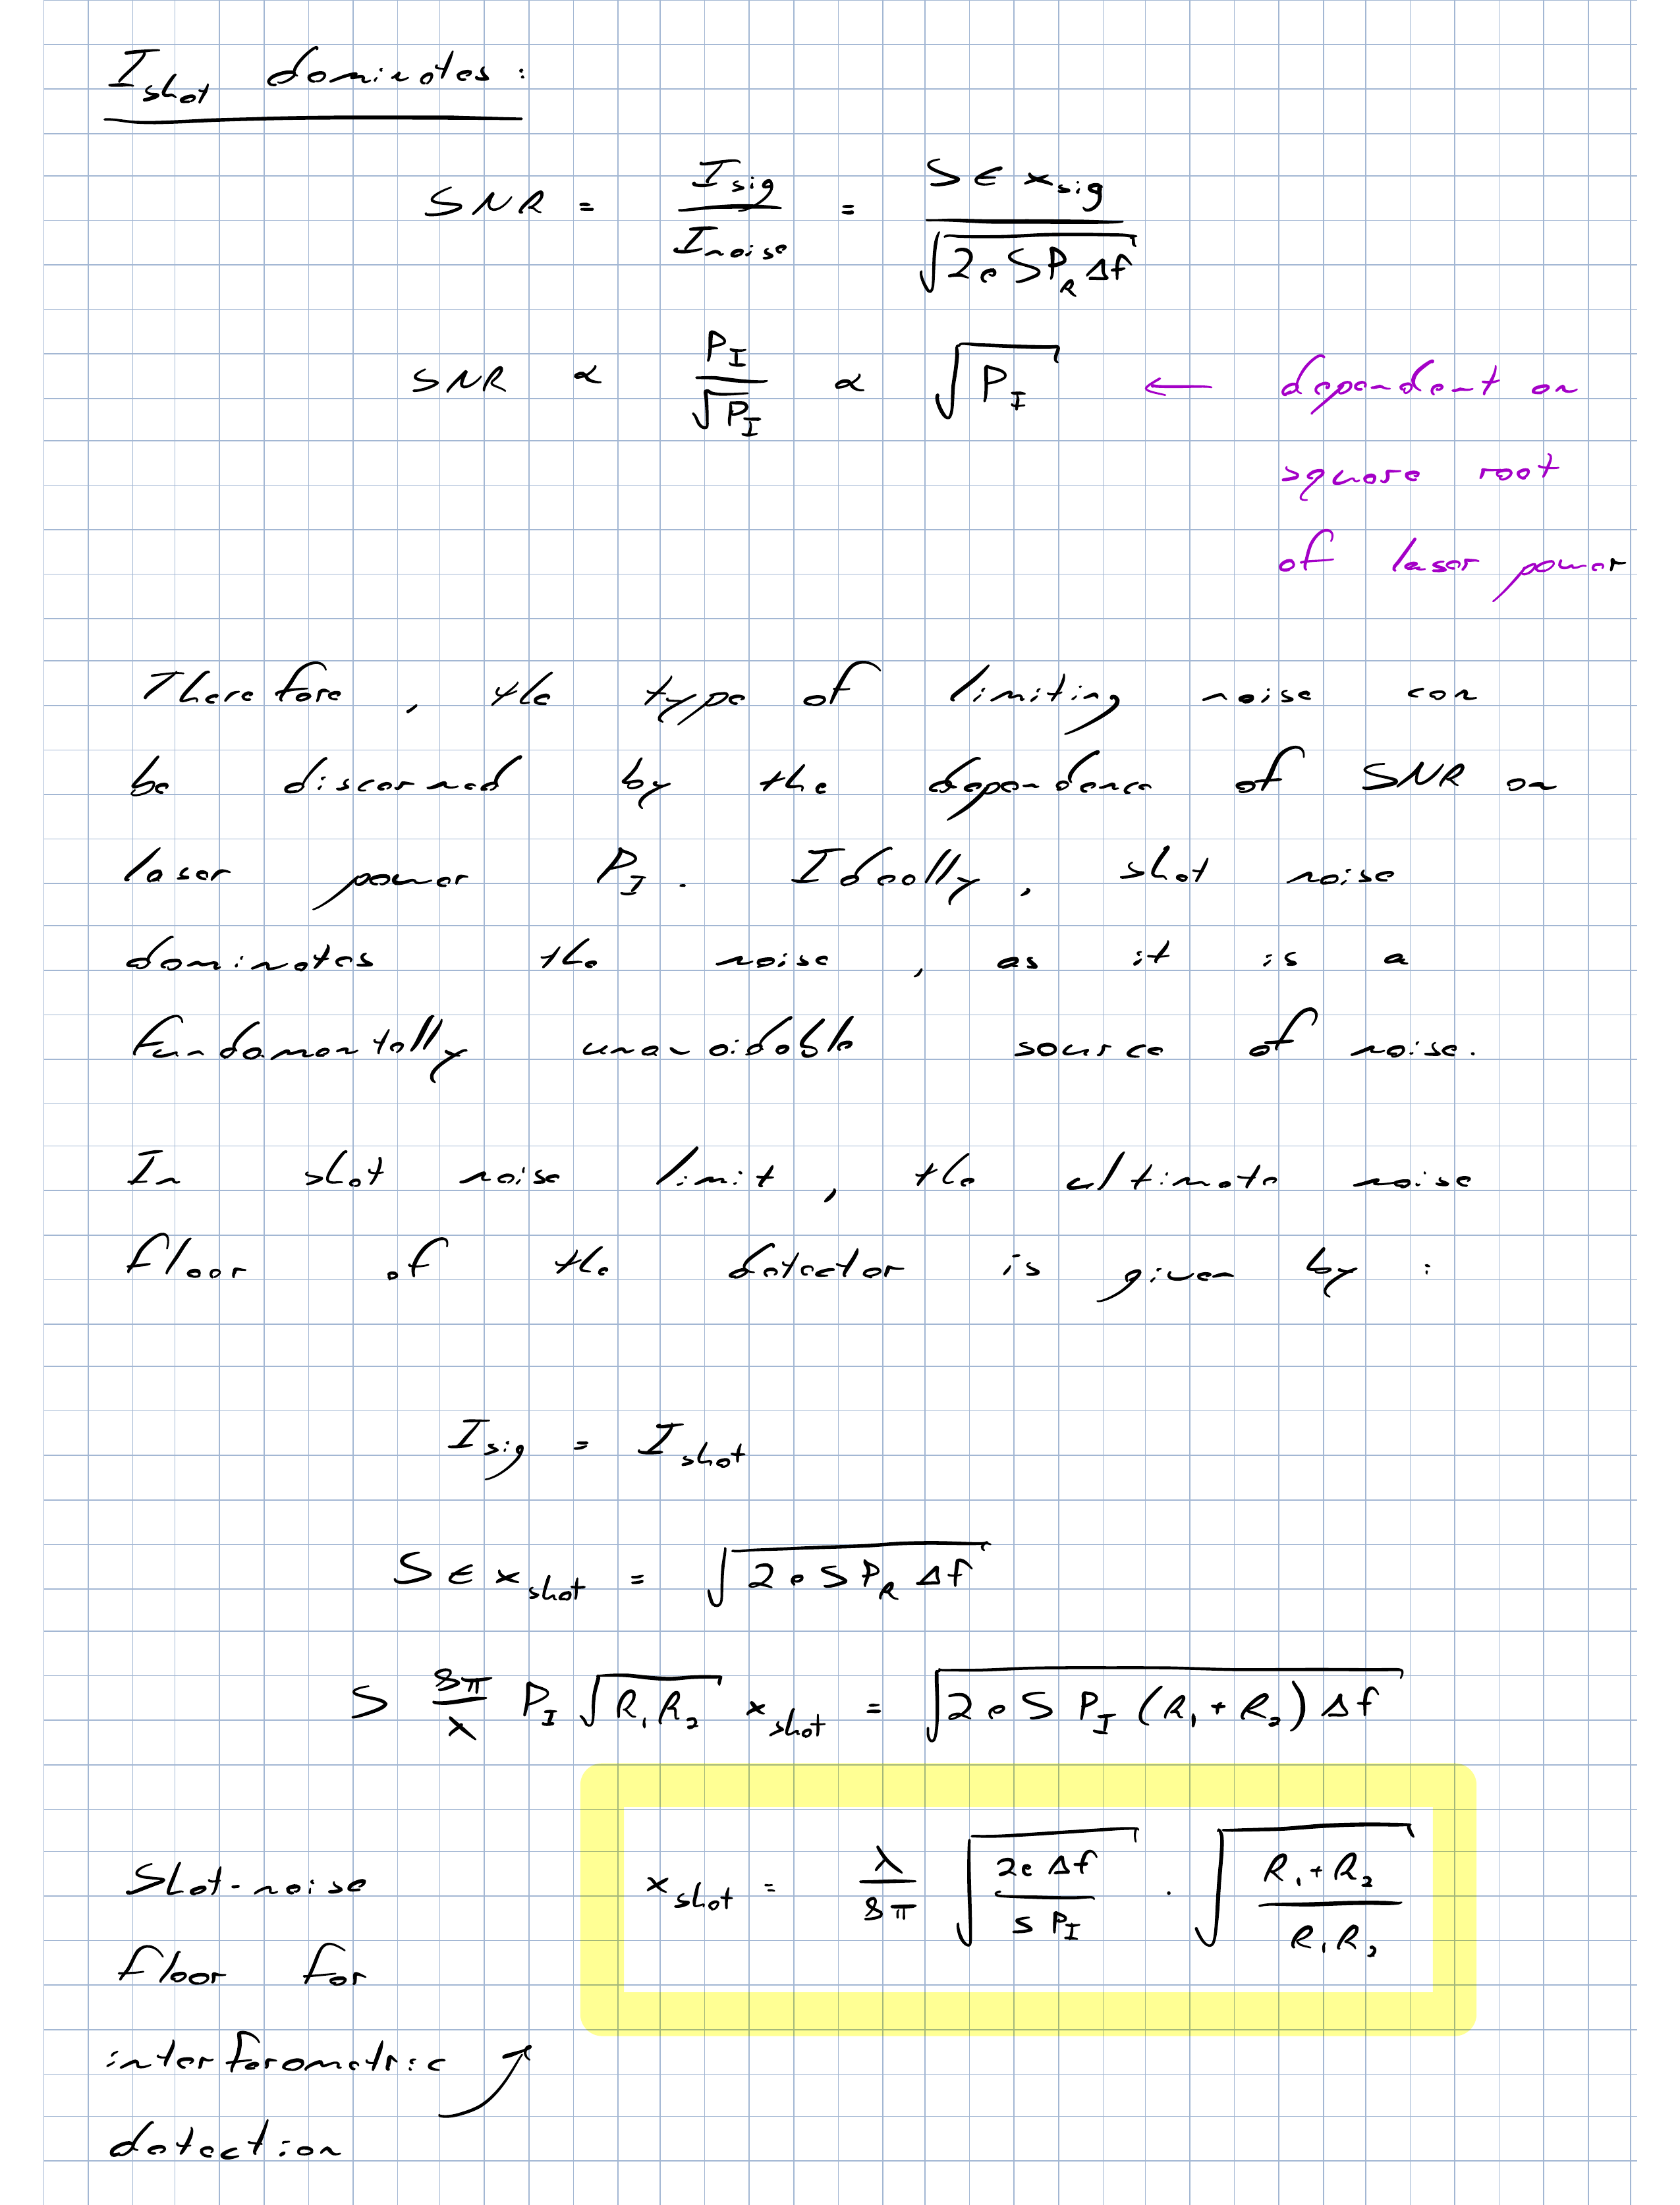 I_shot dominates:
SNR = I_sig / I_noise = S ϵ x_sig / √(2eSP_R Δf)
SNR ∝ P_I / √P_I ∝ √P_I ← dependent on
square root
of laser power
Therefore, the type of limiting noise can
be discerned by the dependence of SNR on
laser power P_I. Ideally, shot noise
dominates the noise, as it is a
fundamentally unavoidable source of noise.
In shot noise limit, the ultimate noise
floor of the detector is given by:
I_sig = I_shot
S ϵ x_shot = √(2eSP_R Δf)
S 8π/λ P_I √(R_1 R_2) x_shot = √(2eS P_I (R_1 + R_2) Δf)
x_shot = λ/8π √(2e Δf / S P_I) · √((R_1 + R_2) / (R_1 R_2))
Shot-noise
floor for
interferometric
detection